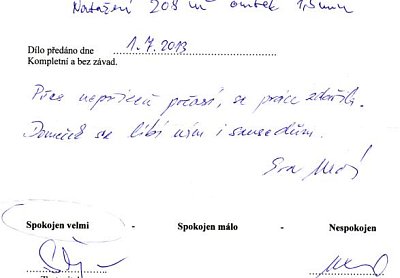 Natažení 208 m² omítek 1,5mm
Dílo předáno dne 1.7.2013
Kompletní a bez závad.
Přes nepřízeň počasí, se práce zdařila.
Domeček se líbí nám i sousedům.
Spokojen velmi - Spokojen málo - Nespokojen